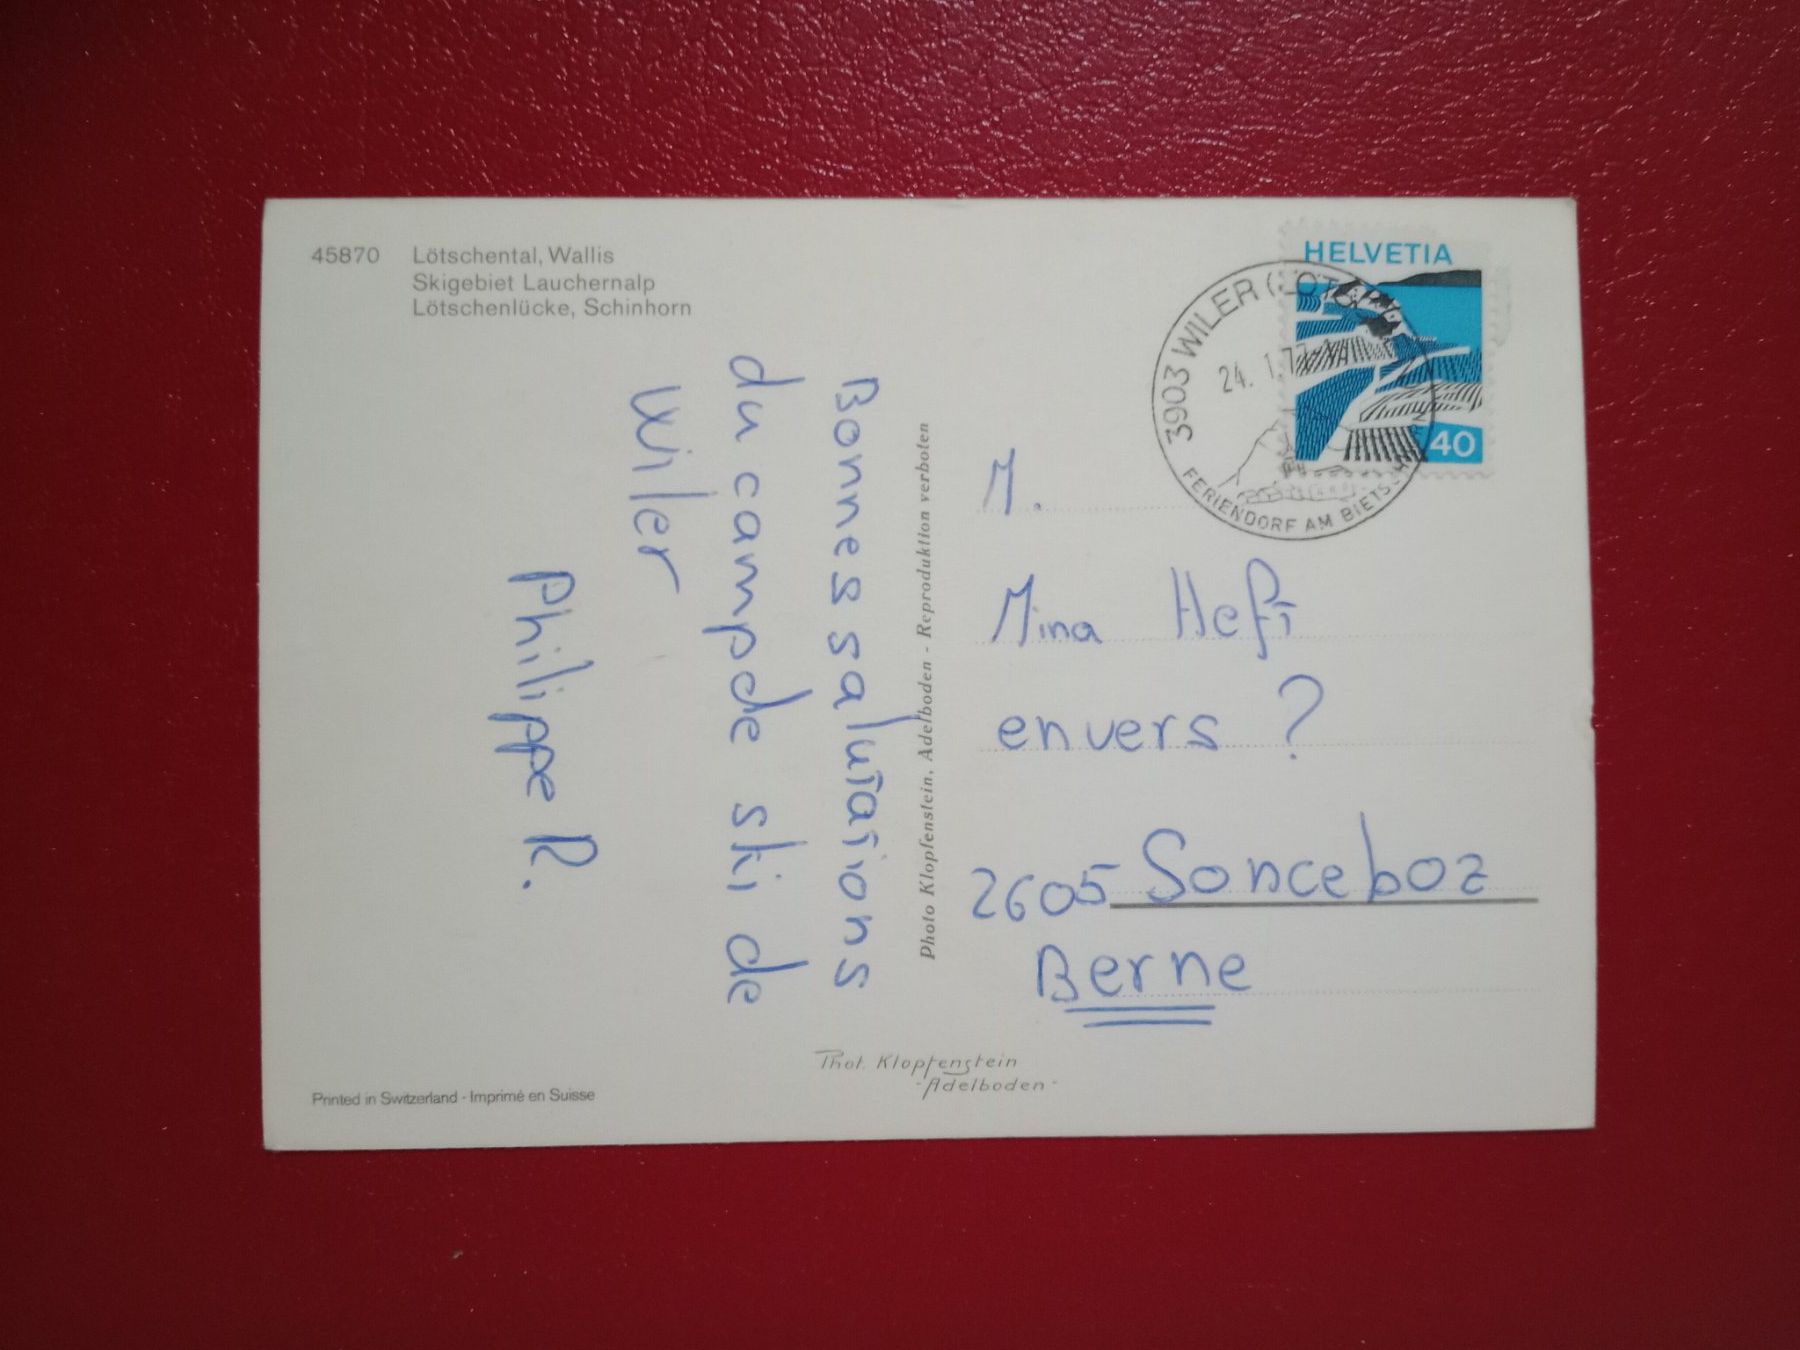 45870 Lötschental, Wallis
Skigebiet Lauchernalp
Lötschenlücke, Schinhorn
Bonnes salutations
du camp de ski de
Wiler
Philippe R.
Printed in Switzerland - Imprimé en Suisse
Photo Klopfenstein, Adelboden - Reproduktion verboten
Phot. Klopfenstein
-Adelboden-
HELVETIA
40
3903 WILER
24. 1. 77
FERIENDORF AM
M.
Mina Hefti
envers ?
2605 Sonceboz
Berne